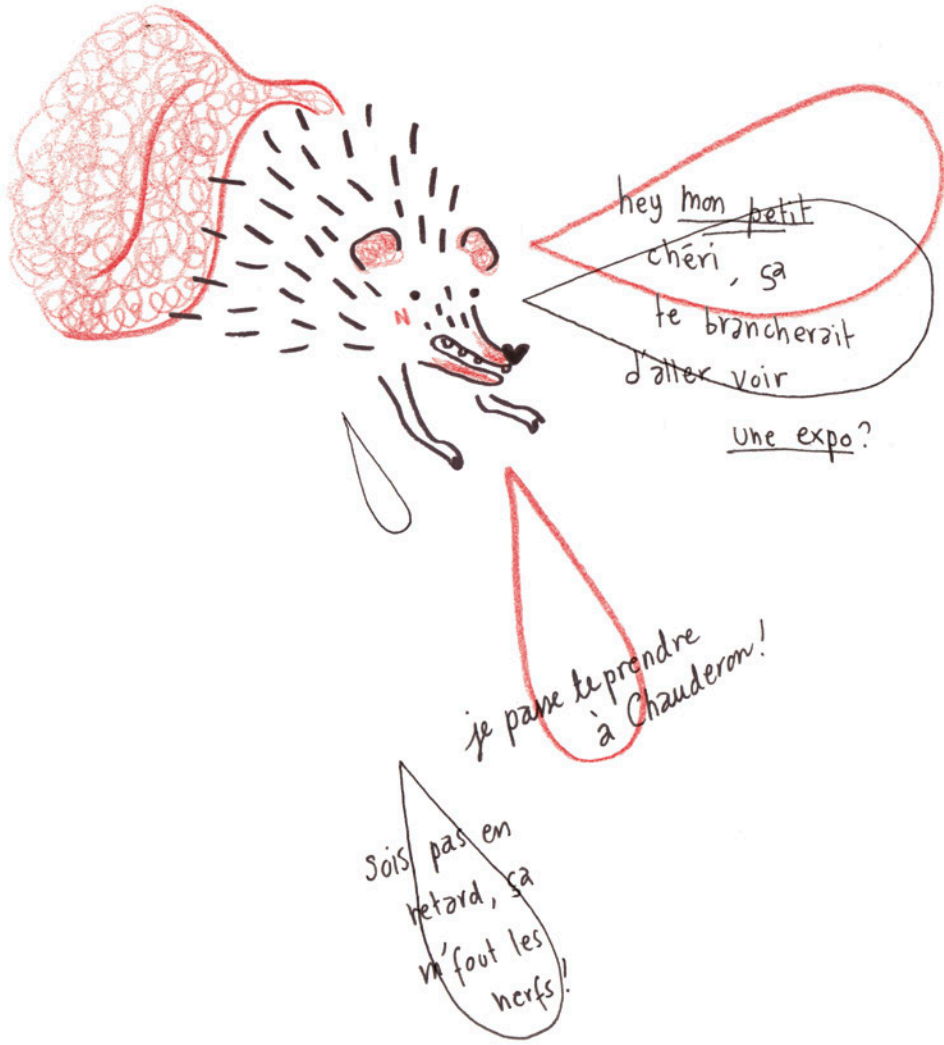 hey mon petit
chéri, ça
te brancherait
d'aller voir
une expo?
N
je passe te prendre
à Chauderon!
Sois pas en
retard, ça
m'fout les
nerfs!